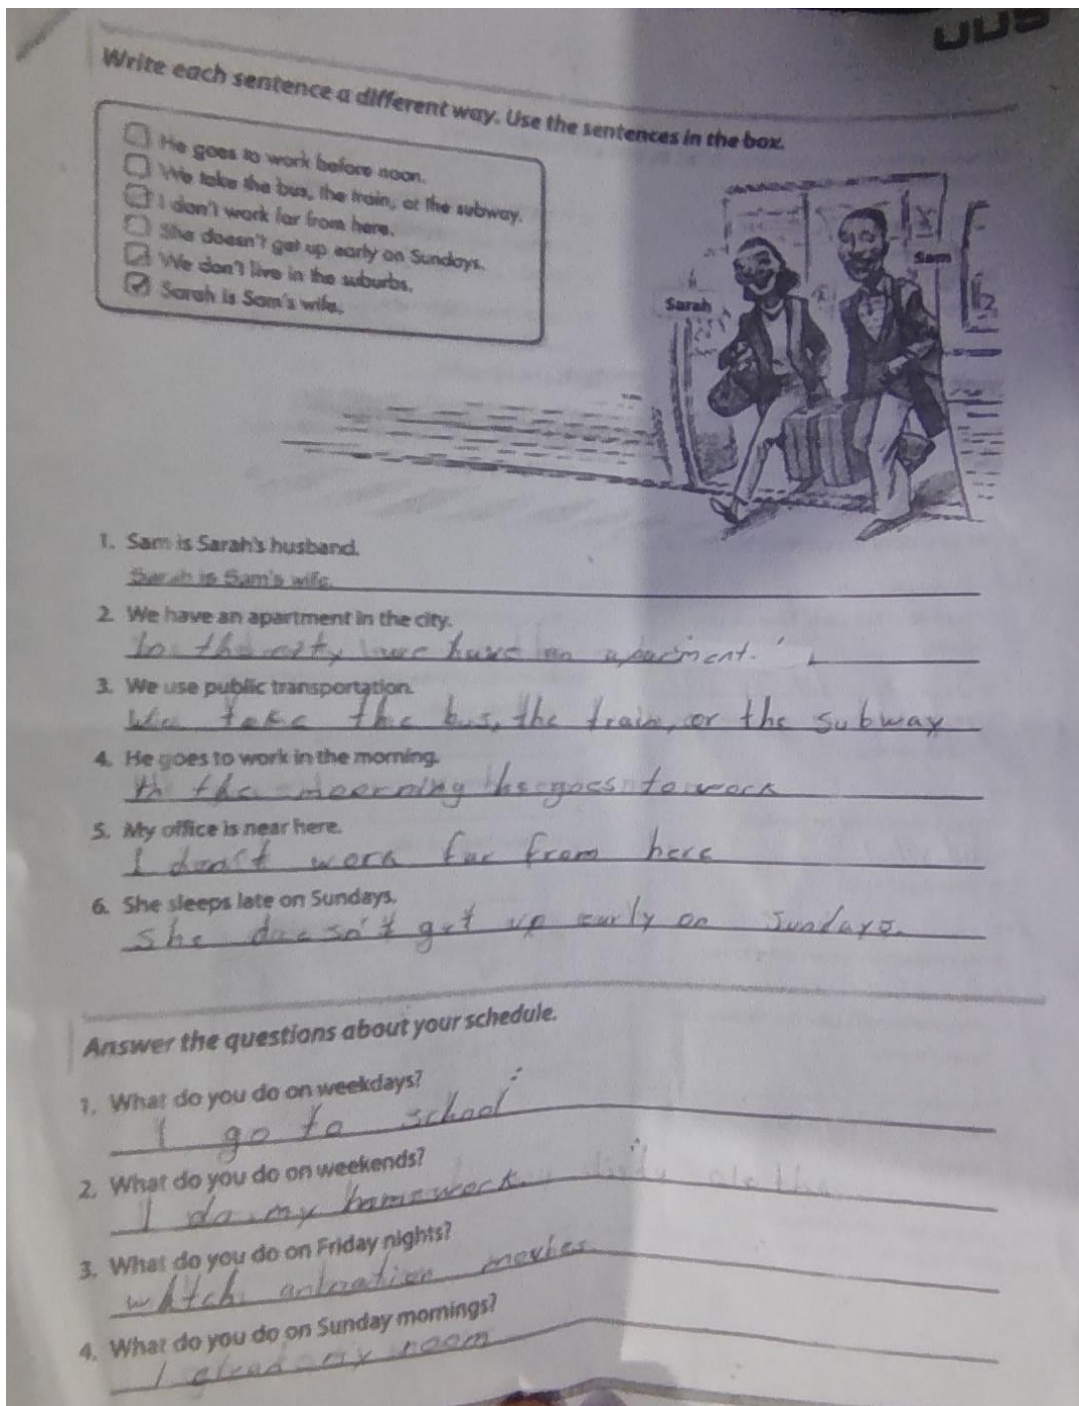 Write each sentence a different way. Use the sentences in the box.
He goes to work before noon.
We take the bus, the train, or the subway.
I don't work far from here.
She doesn't get up early on Sundays.
We don't live in the suburbs.
Sarah is Sam's wife.
Sarah
Sam
1. Sam is Sarah's husband.
Sarah is Sam's wife.
2. We have an apartment in the city.
In the city we have an aparment.
3. We use public transportation.
We take the bus, the train, or the subway
4. He goes to work in the morning.
In the moorning he goes to work
5. My office is near here.
I don't work far from here
6. She sleeps late on Sundays.
She doesn't get up early on Sundays.
Answer the questions about your schedule.
1. What do you do on weekdays?
I go to school
2. What do you do on weekends?
I do my homework.
3. What do you do on Friday nights?
movies
4. What do you do on Sunday mornings?
I my room